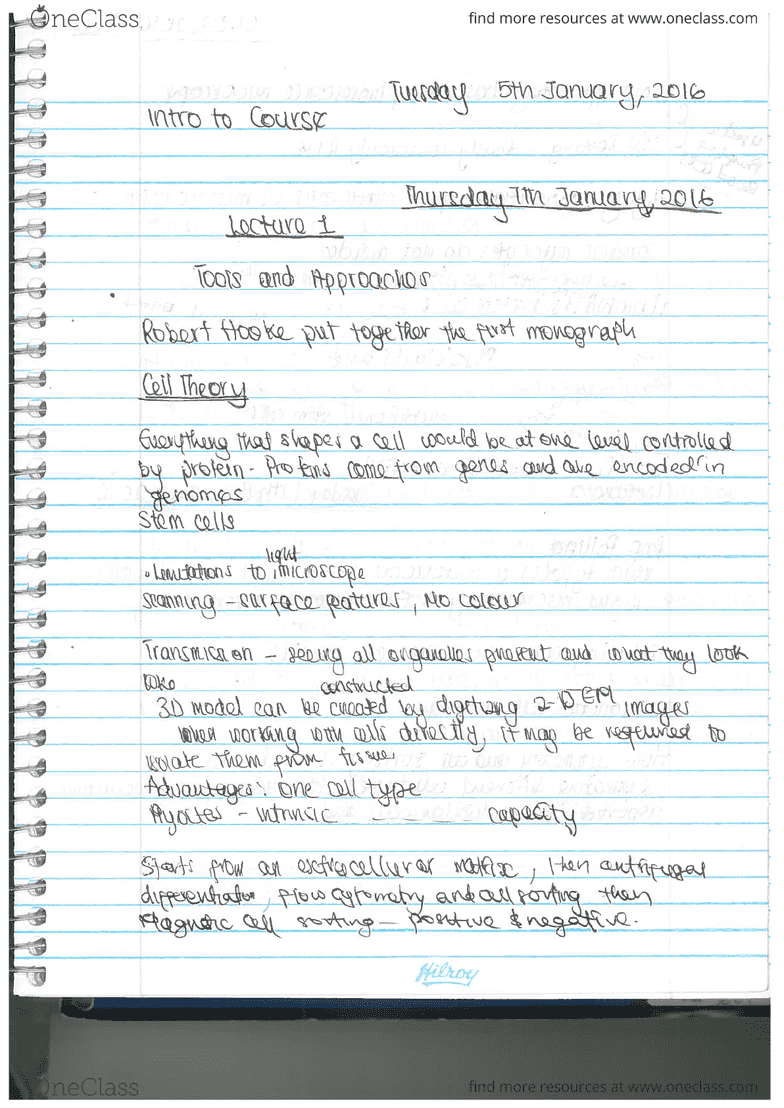 OneClass
find more resources at www.oneclass.com
Tuesday 5th January, 2016
Intro to Course
Thursday 7th January, 2016
Lecture 1
Tools and Approaches
Robert Hooke put together the first monograph
Cell Theory
Everything that shapes a cell would be at one level controlled
by protein. Proteins come from genes and are encoded in
genomes
Stem cells
light
. Limitations to microscope
scanning – surface features, No colour
Transmission – seeing all organelles present and what they look
like
constructed
3D model can be created by digitizing 2-D EM images
when working with cells directly, it may be required to
isolate them from tissue
Advantages: one cell type
Myocites – intrinsic capacity
Starts from an extracellular matrix, then centrifugal
differentiator, flow cytometry and cell sorting then
Magnetic cell sorting – positive & negative.
Hilroy
OneClass
find more resources at www.oneclass.com